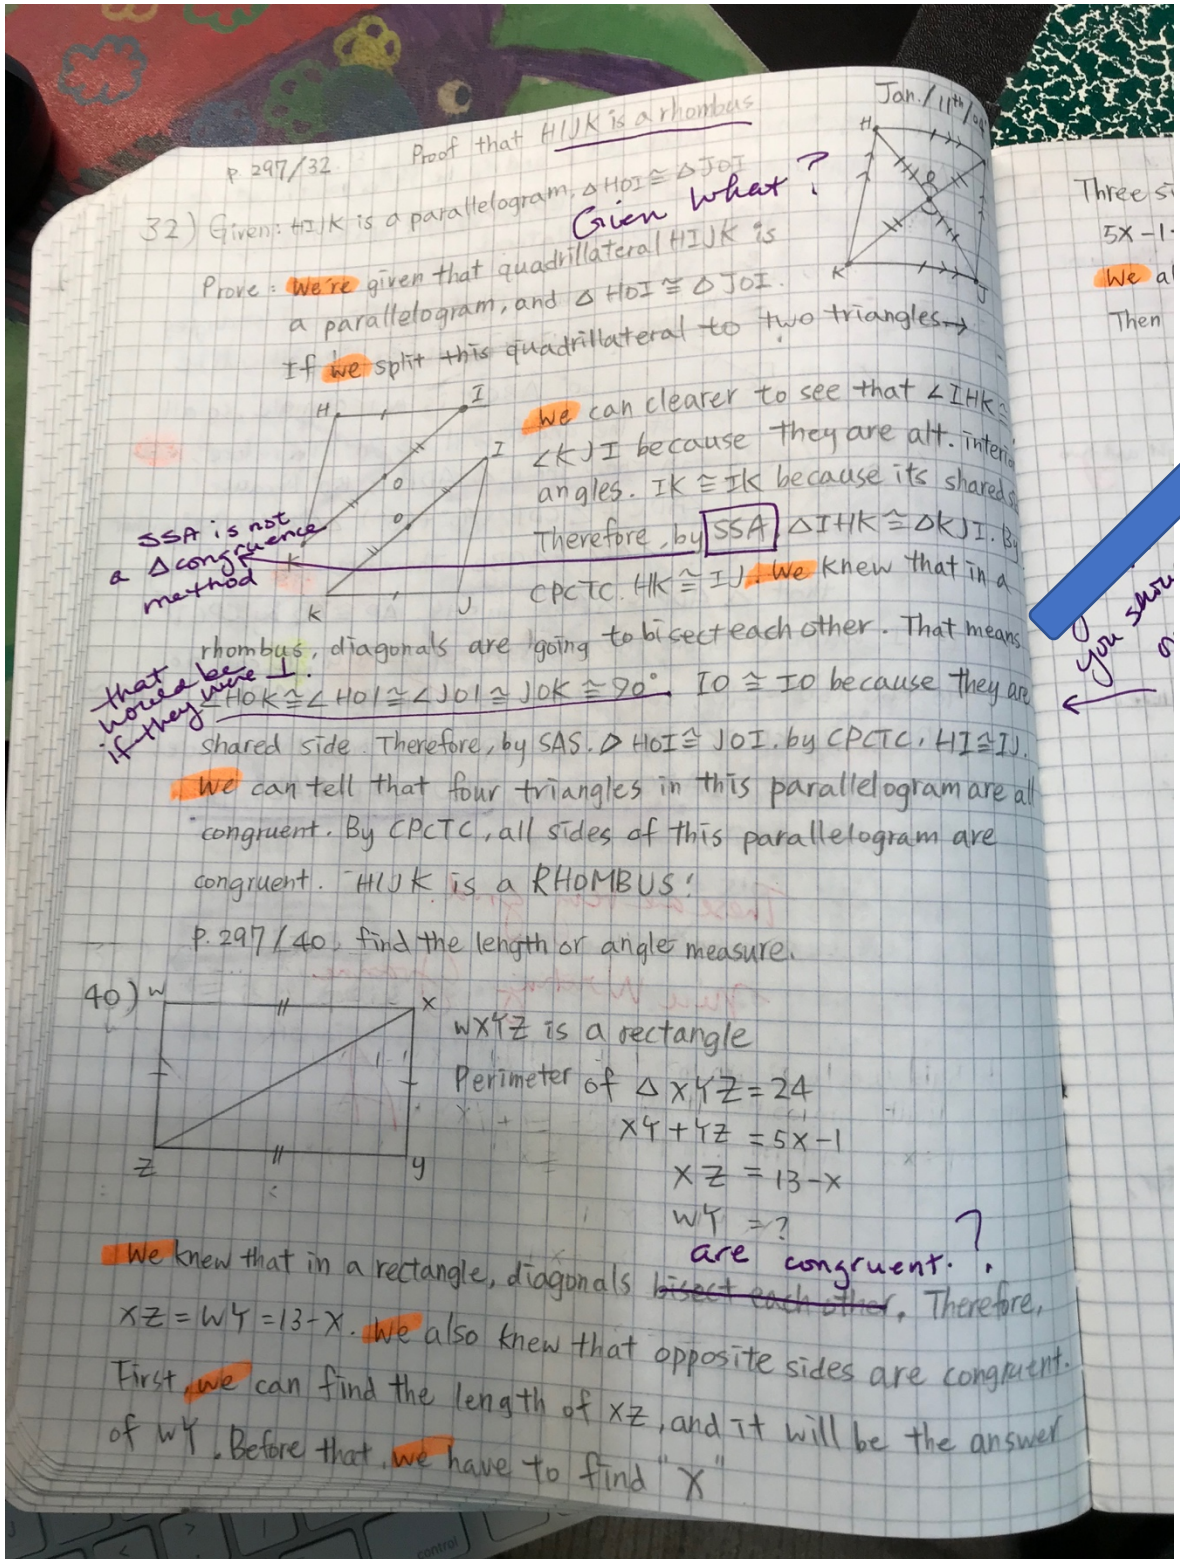 Jan. / 11th /
p. 297/32. Proof that HIJK is a rhombus
32) Given: HIJK is a parallelogram, △HOI ≅ △JOI
Given what?
H
K
J
Prove: We're given that quadrillateral HIJK is
a parallelogram, and △HOI ≅ △JOI.
If we split this quadrillateral to two triangles→
H I
I
O
O
K
K J
We can clearer to see that ∠IHK ≅
∠KJI because they are alt. interio
angles. IK ≅ IK because its shared
Therefore, by SSA, △IHK ≅ △KJI. By
CPCTC. HK ≅ IJ. We knew that in a
SSA is not
a △ congruence
method
rhombus, diagonals are going to bisect each other. That means
that
would be
if they were ⊥.
∠HOK ≅ ∠HOI ≅ ∠JOI ≅ JOK ≅ 90°. IO ≅ IO because they are
shared side. Therefore, by SAS. △HOI ≅ JOI. by CPCTC, HI ≅ IJ.
We can tell that four triangles in this parallelogram are all
congruent. By CPCTC, all sides of this parallelogram are
congruent. HIJK is a RHOMBUS!
p. 297/40, find the length or angle measure.
40) W X
Z Y
WXYZ is a rectangle
Perimeter of △XYZ = 24
XY + YZ = 5x-1
XZ = 13-x
WY = ?
are congruent. ?
We knew that in a rectangle, diagonals bisect each other. Therefore,
XZ = WY = 13-X. We also knew that opposite sides are congruent.
First, we can find the length of XZ, and it will be the answer
of WY. Before that, we have to find "X"
Three
5x-1
We
Then
you